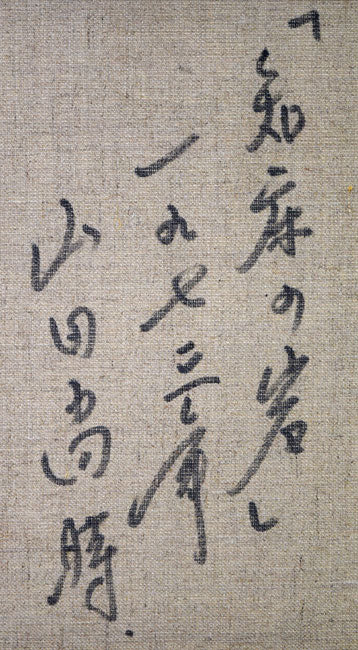 「知床の岩」
一九七三年
山田尚勝